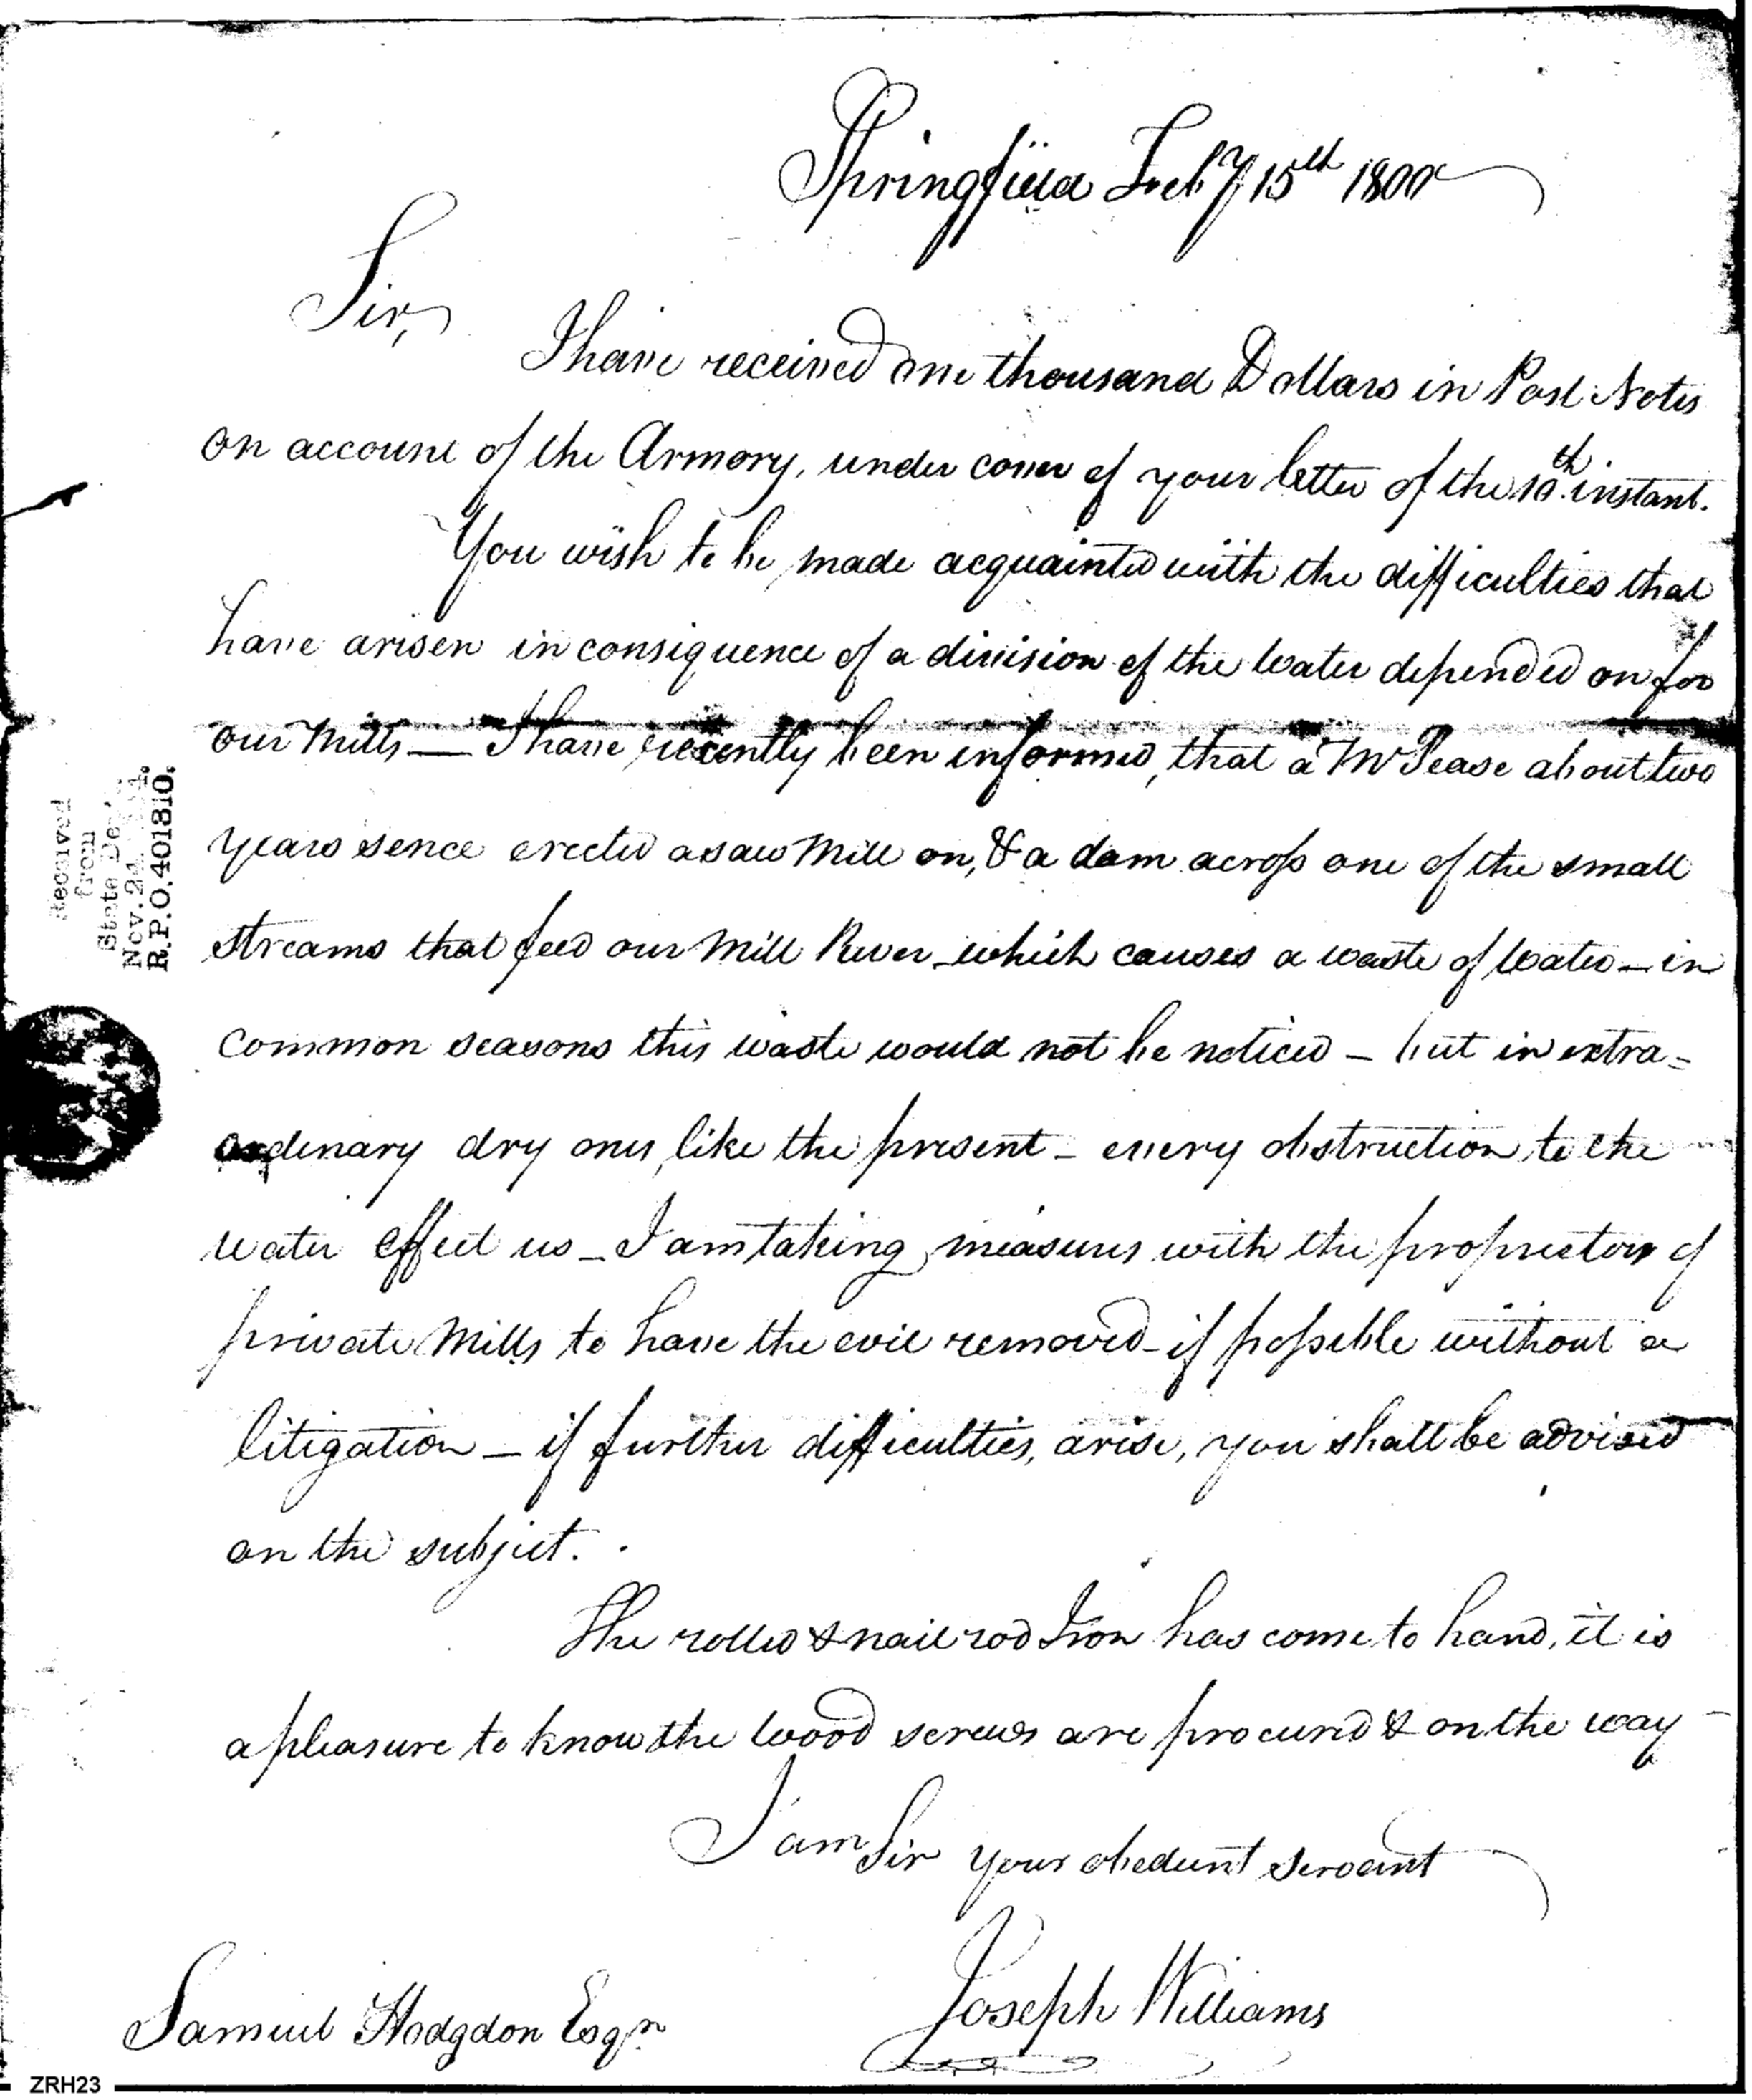 Springfield Feby 15th 1800
Sir,
I have received One thousand Dollars in Post Notes
on account of the Armory, under cover of your letter of the 10th instant.
You wish to be made acquainted with the difficulties that
have arisen in consiquence of a division of the Water depended on for
our Mills — I have recently been informed, that a Mr Pease about two
years sence erected a saw Mill on, & a dam across one of the small
streams that feed our Mill River — which causes a waste of Water — in
common seasons this waste would not be noticed — but in extra=
ordenary dry ones, like the present — every obstruction to the
water effect us — I am taking measures with the proprietors of
private Mills to have the evil removed — if possible without a
litigation — if further difficulties, arise, you shall be advised
on the subject.
The rolled & nail rod Iron has come to hand, it is
a pleasure to know the Wood screws are procured & on the way —
I am Sir your obedient servant
Joseph Williams
Samuel Hodgdon Esqr
Received
from
State De
Nov. 24
R.P.O. 401810.
ZRH23